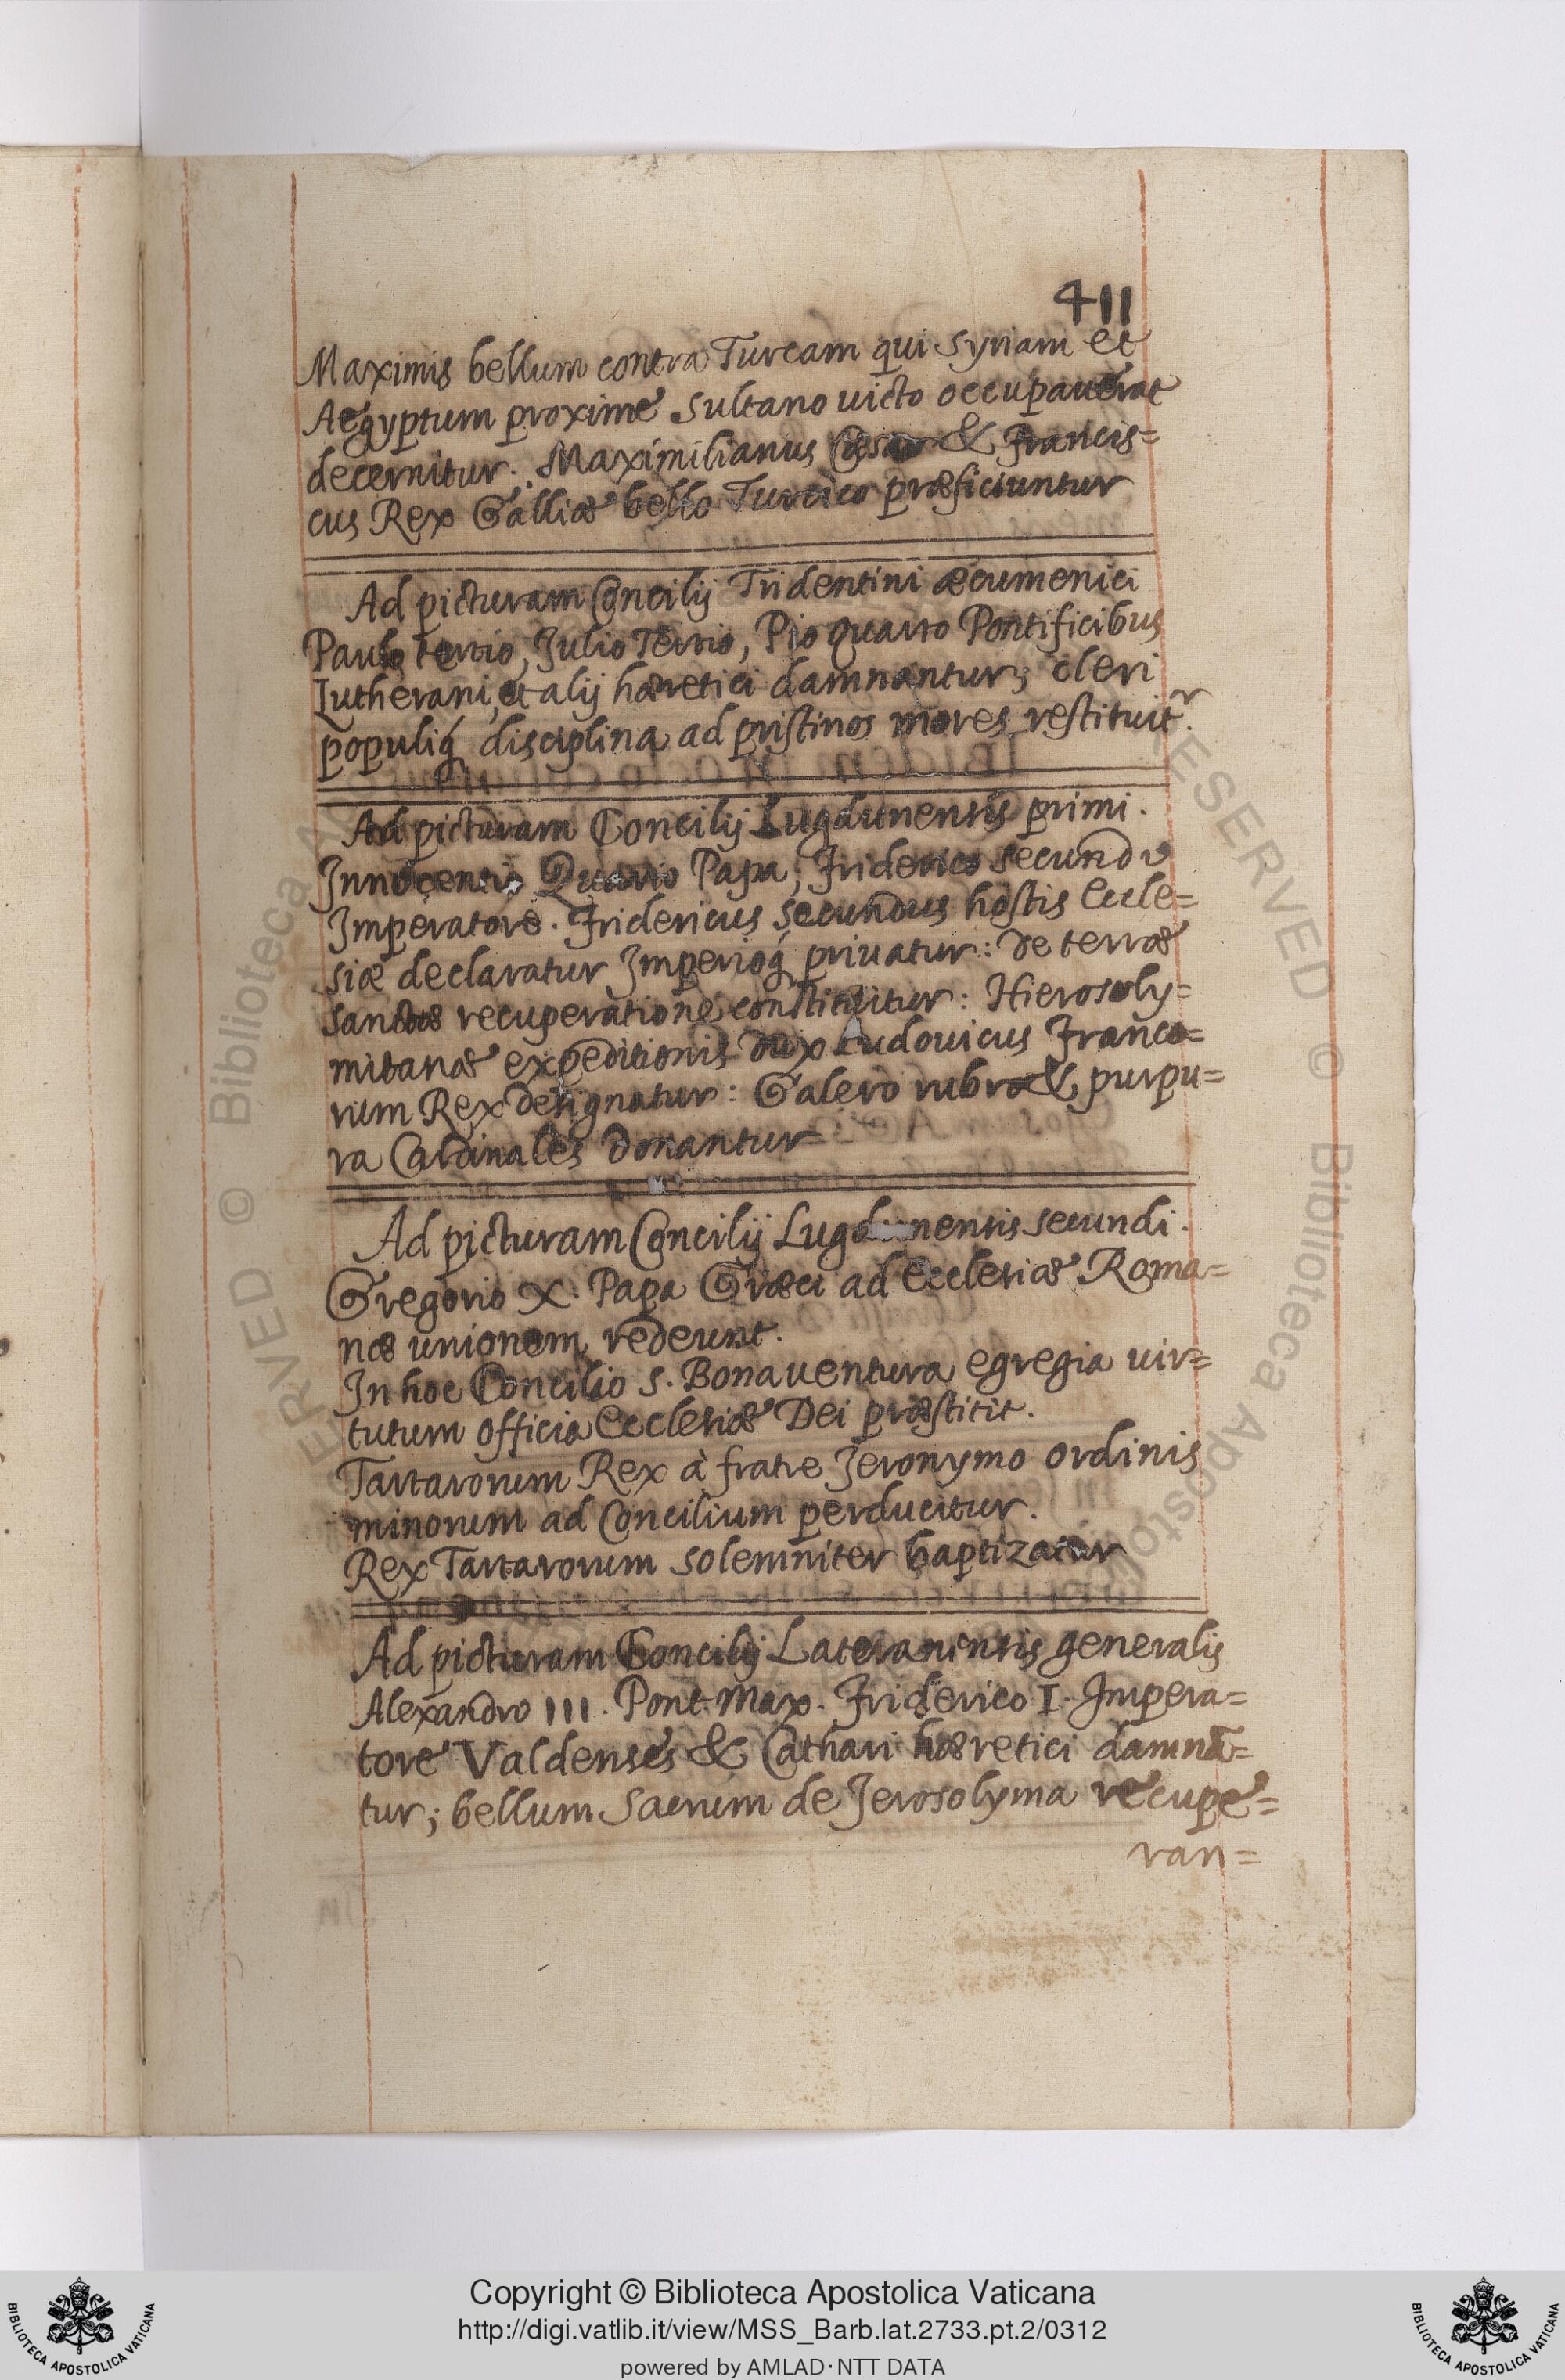 411
Maximis bellum contra Turcam qui Syriam et
Aegyptum proxime Sultano victo occupauerat
decernitur. Maximilianus Cęsar & Francis=
cus Rex Galliæ bello Turcico præficiuntur
Ad picturam Concilij Tridentini œcumenici
Paulo tertio, Julio Tertio, Pio quarto Pontificibus
Lutherani, et alij hæretici damnantur; cleri
populiq́ disciplina ad pristinos mores restituitr.
Ad picturam Concilij Lugdunensis primi.
Innocentio Quarto Papa; Friderico secundo
Imperatore. Fridericus Secundus hostis Eccle=
siæ declaratur Imperioq́ priuatur: de terræ
sanctæ recuperatione constituitur: Hierosoly=
mitanæ expeditionis dux Ludouicus Franco=
rum Rex designatur: Galero rubro & purpu=
ra Cardinales donantur
Ad picturam Concilij Lugdunensis secundi.
Gregorio X. Papa Græci ad Ecclesiæ Roma=
næ unionem redeunt.
In hoc Concilio S. Bonaventura egregia vir=
tutum officia Ecclesiæ Dei præstitit.
Tartarorum Rex à fratre Jeronymo ordinis
minorum ad Concilium perducitur.
Rex Tartarorum solemniter baptizatur
Ad picturam Concilij Lateranensis generalis
Alexandro III. Pont. Max. Friderico I. Impera=
tore Valdenses & Cathari hæretici damnā=
tur; bellum Sacrum de Jerosolyma recupe=
ran=
Copyright © Biblioteca Apostolica Vaticana
http://digi.vatlib.it/view/MSS_Barb.lat.2733.pt.2/0312
powered by AMLAD·NTT DATA
BIBLIOTECA APOSTOLICA VATICANA
BIBLIOTECA APOSTOLICA VATICANA